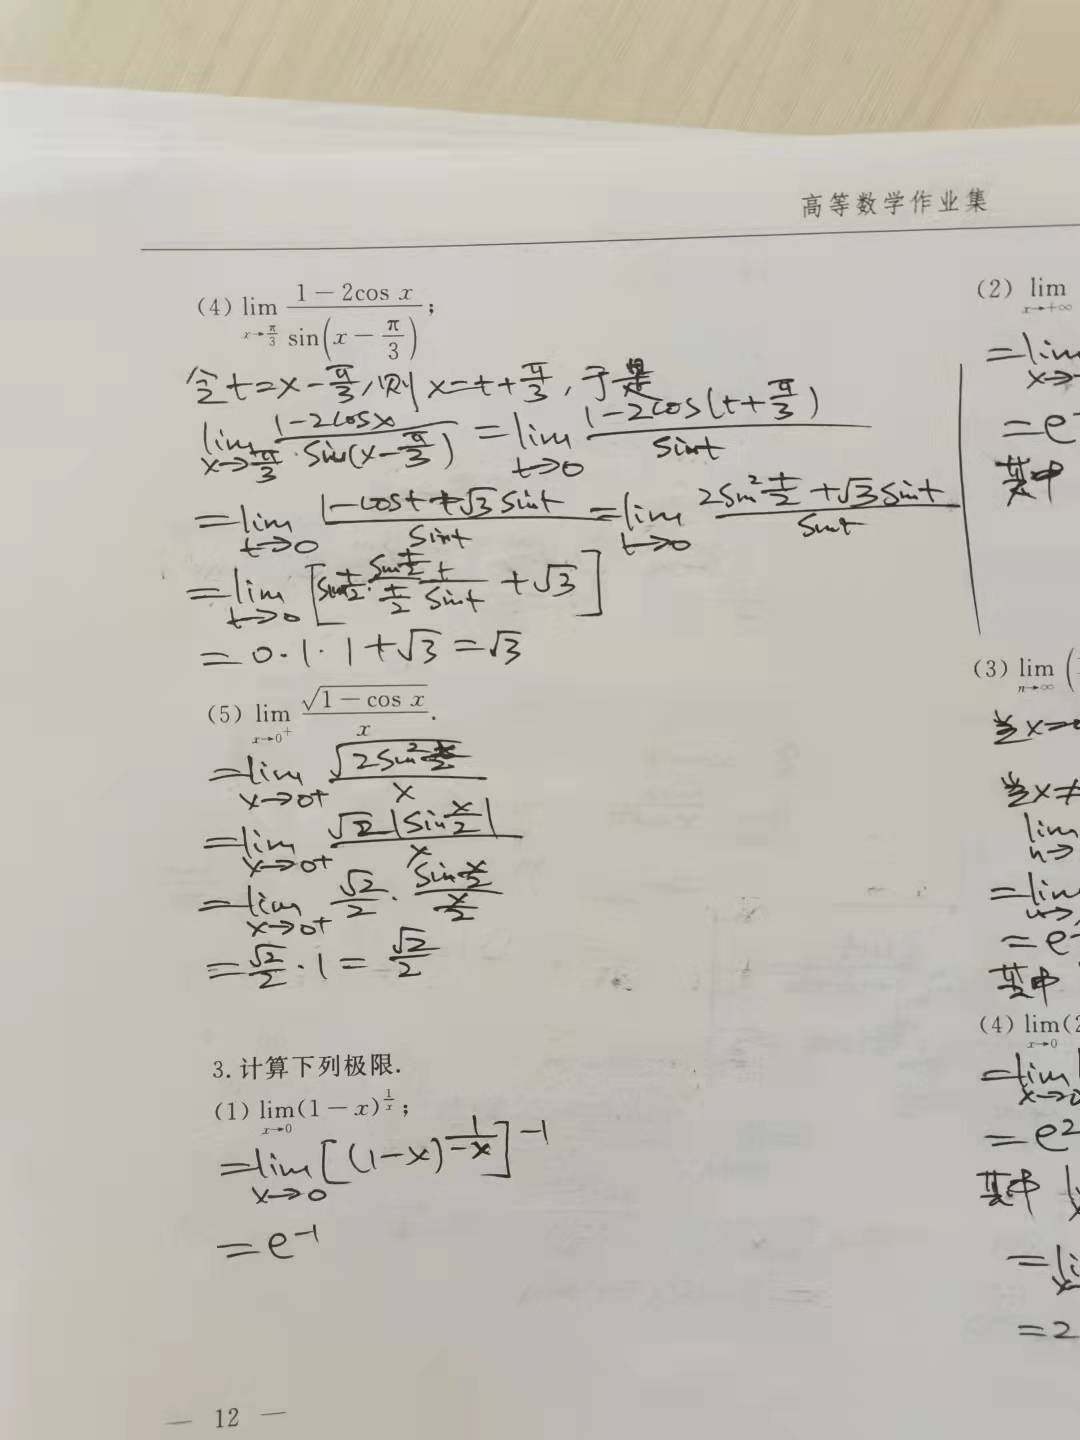 高等数学作业集
(4) lim x→π/3 (1－2cos x)/sin(x－π/3);
令t=x-π/3,则x=t+π/3,于是
lim x→π/3 (1-2cosx)/sin(x-π/3) = lim t→0 (1-2cos(t+π/3))/sint
=lim t→0 (1-cost+√3sint)/sint =lim t→0 (2sin²t/2+√3sint)/sint
=lim t→0 [sin t/2·(sin t/2)/(t/2)·t/sint+√3]
=0·1·1+√3=√3
(5) lim x→0⁺ √(1－cos x)/x.
=lim x→0+ √(2sin²x/2)/x
=lim x→0+ √2|sin x/2|/x
=lim x→0+ √2/2·(sin x/2)/(x/2)
=√2/2·1=√2/2
3.计算下列极限.
(1) lim x→0 (1－x)^(1/x);
=lim x→0 [(1-x)^(1/-x)]^-1
=e^-1
— 12 —
(2) lim x→+∞
=lim x→
=e
其中
(3) lim n→∞ (
当x=0
当x≠
lim n→
=lim n→
=e
其中
(4) lim x→0 (2
=lim x→0
=e²
其中 l
=li
=2